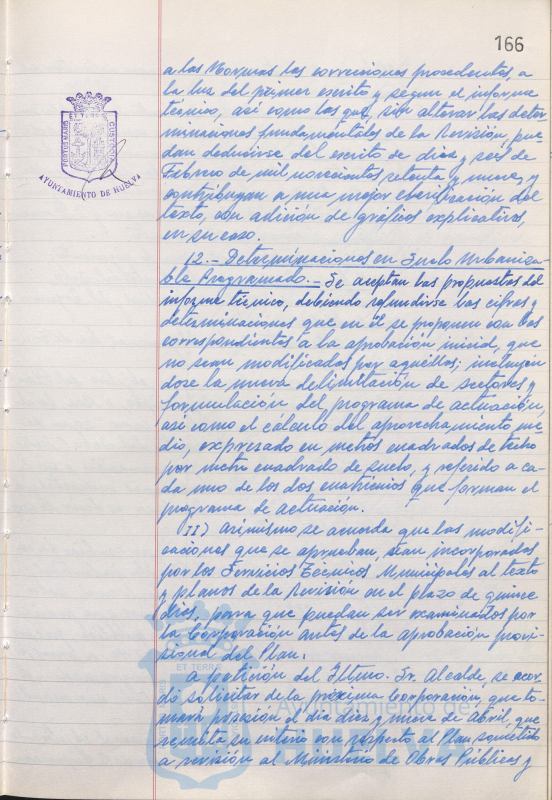 166
a las Normas las correcciones procedentes, a
la luz del primer escrito y según el informe
técnico, así como las que, sin alterar las deter
minaciones fundamentales de la Revisión pue-
dan deducirse del escrito de diez y seis de
Febrero de mil novecientos setenta y nueve, y
contribuyan a una mejor clarificación del
texto, con adición de gráficos explicativos,
en su caso.
12.- Determinaciones en Suelo Urbaniza-
ble Programado.- Se aceptan las propuestas del
informe técnico, debiendo refundirse las cifras y
determinaciones que en él se proponen con las
correspondientes a la aprobación inicial, que
no sean modificadas por aquellas; incluyén
dose la nueva delimitación de sectores y
formulación del programa de actuación,
así como el cálculo del aprovechamiento me-
dio, expresado en metros cuadrados de techo
por metro cuadrado de suelo, y referido a ca-
da uno de los dos cuatrienios que forman el
programa de actuación.
II) Asimismo se acuerda que las modifi-
caciones que se aprueban, sean incorporadas
por los Servicios Técnicos Municipales al texto
y planos de la Revisión en el plazo de quince
días, para que puedan ser examinados por
la Corporación antes de la aprobación provi-
sional del Plan.
A petición del Iltmo. Sr. Alcalde, se acor
dó solicitar de la próxima Corporación, que to-
mará posesión el día diez y nueve de Abril, que
remita su criterio con respecto al Plan sometido
a revisión al Ministerio de Obras Públicas y
PORTUS MARIS
ET TERRAE
CUSTODIA
AYUNTAMIENTO DE HUELVA
ET TERRÆ
Ayuntamiento de
HUELVA